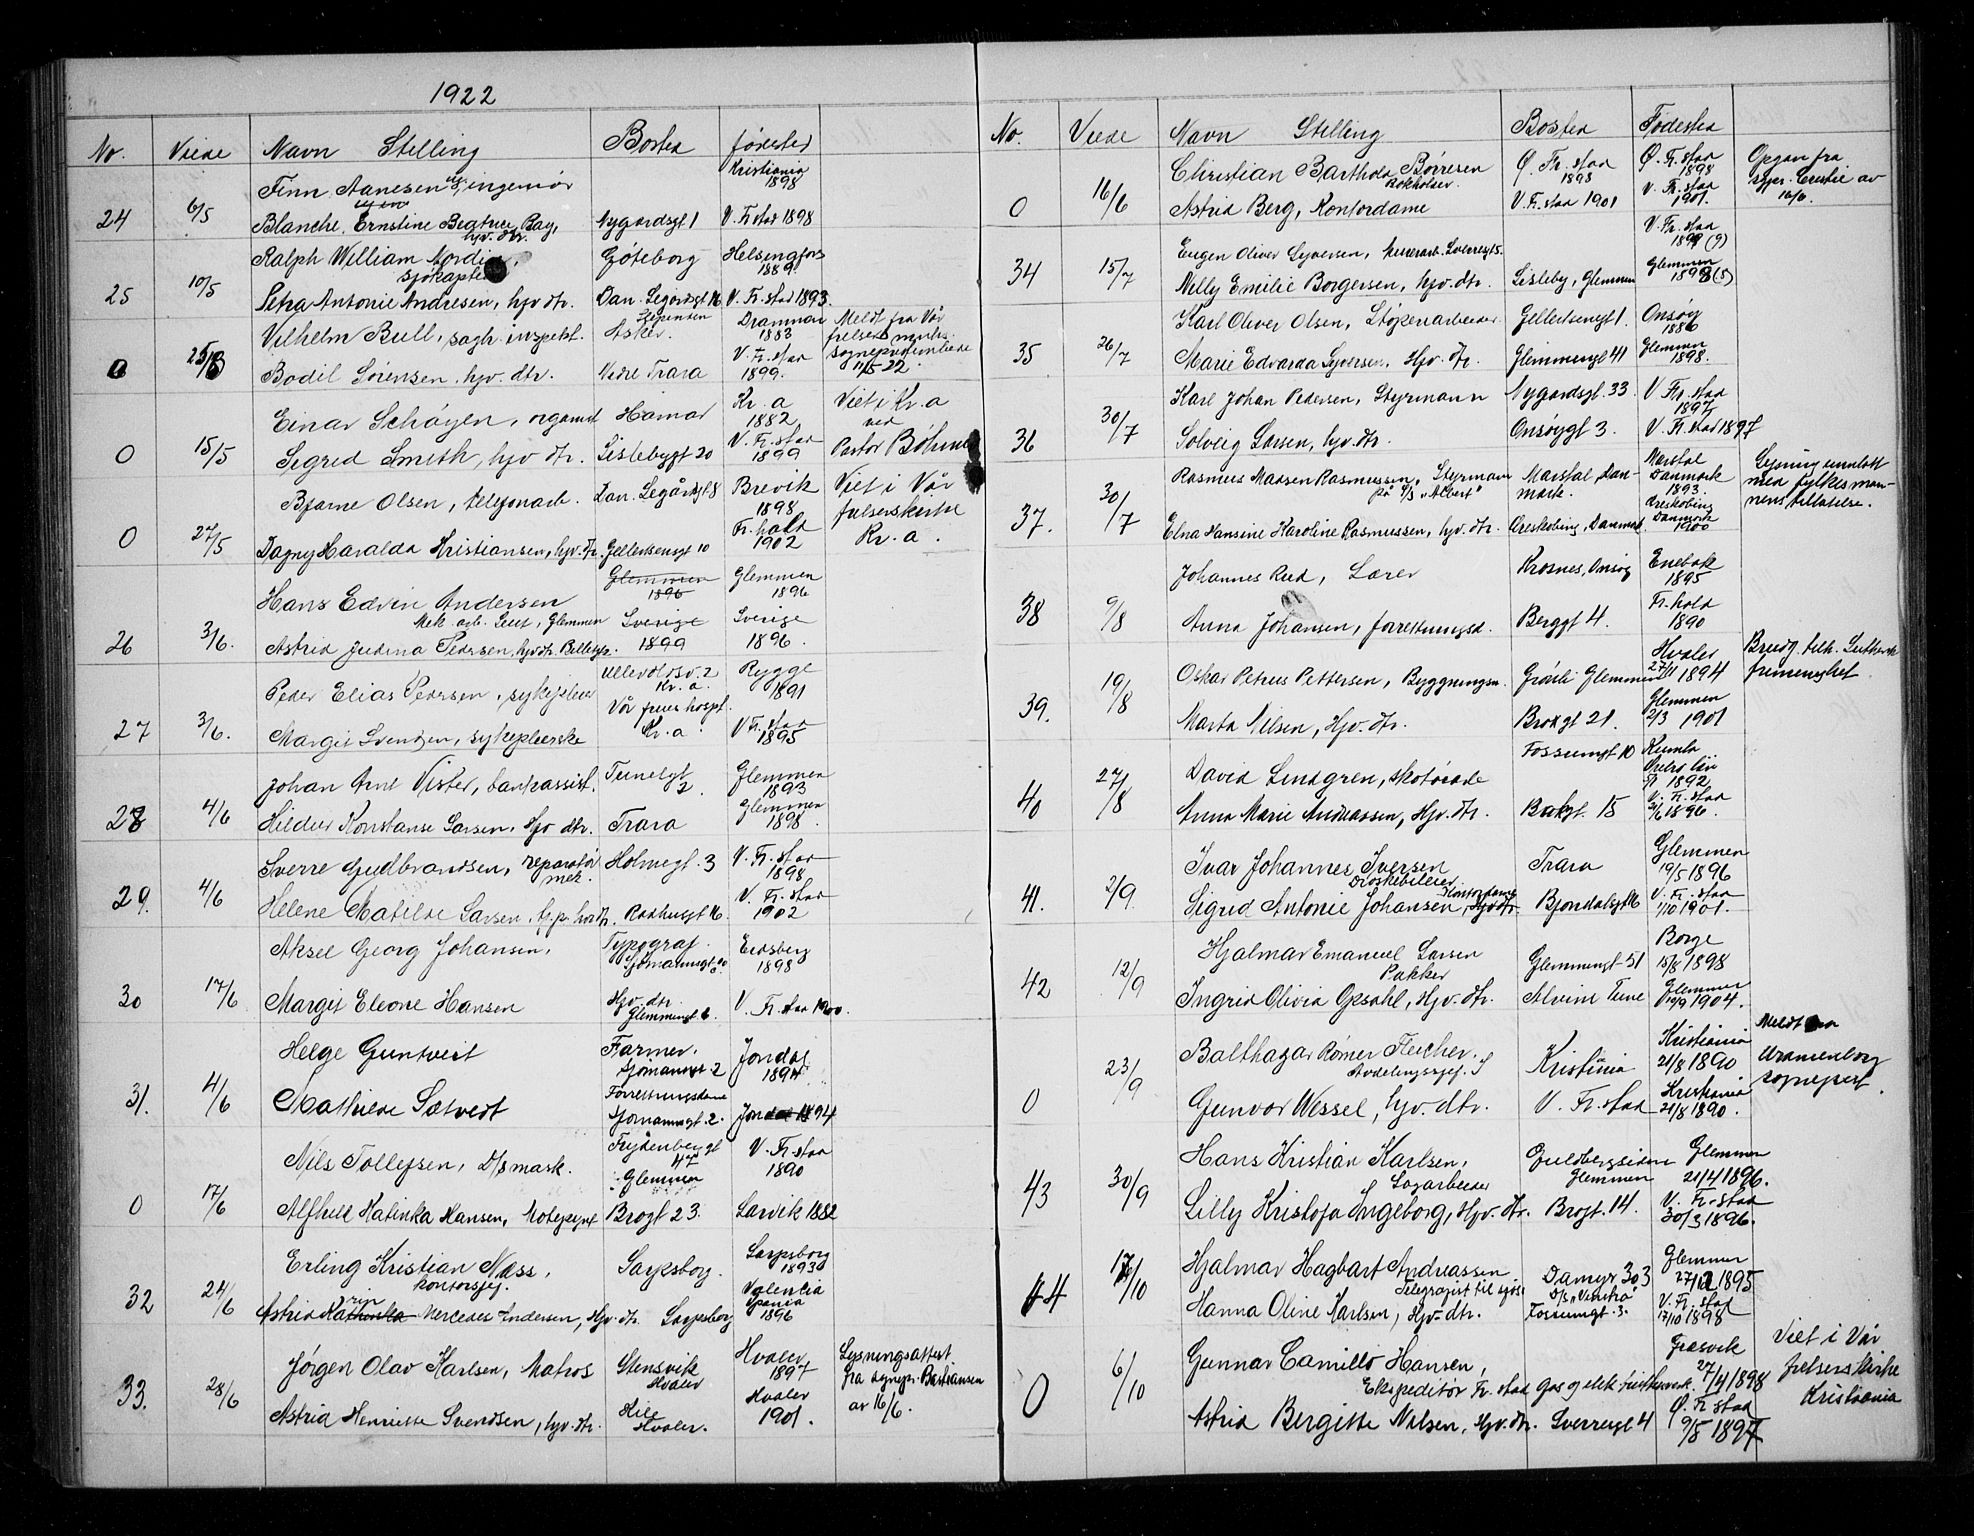 1922
No. Viede Navn Stelling Bosted fødested
Finn Aanesen ingeniør Kristiania 1898
24 6/5 Blanche Ernstine Beatrice Bay, Nygårdsgt 1 V. Fr.stad 1898
hjv. dtr.
Ralph William Nordin, Göteborg Helsingfors 1889
sjøkaptein
25 10/5 Petra Antonie Andresen, hjv dtr. Dan. Legårdsgt 16 V. Fr. stad 1893.
Vilhelm Bull, sagb. inspekt. Asker. Drammen 1883 Meldt fra Vår
frelsers menh.
0 Bodil Sørensen, hjv. dtr. Nedre Trara V. Fr. stad 1899. 11/5 22.
Einar Schøyen, organist Hamar Kr. a 1882 Viet i Kr. a
ved
0 15/5 Sigrid Smith, hjv dtr. Lislebygt 20 V. Fr. stad 1899 Pastor Bøhmer
Bjarne Olsen, telefonarb. Dan. Legårdsgt 8 Brevik 1898 Viet i Vår
frelserskirke
0 27/5 Dagny Haralda Kristiansen, hjv. dtr. Gellertsensgt 10 Fr. hald 1902 Kr. a.
Hans Edvin Andersen Glemmen 1896 Glemmen 1896
Mek. arb. Leiet, Glemmen
26 3/6. Astrid Judina Pedersen, hjv dtr. Sverige 1899 Sverige 1896.
Peder Elias Pedersen, sykepleier Ullevålsv. 2 Kr. a. Rygge 1891
27 3/6. Margit Svendsen, sykepleierske Vår freers hospt. Kr. a. V Fr. stad 1895
Johan Arnt Vister, bankassist. Tunelgt 2. Glemmen 1893
28 4/6 Hildur Konstanse Larsen, Hjv dtr. Trara Glemmen 1898.
Sverre Gudbrandsen, reparatør mek. Holmegt. 3 V. Fr. stad 1898
29. 4/6 Helene Matilde Larsen, hjv dtr. Rådhusgt 16. V. Fr. stad 1902
Aksel Georg Johansen, Typograf. Sjømannsgt Eidsberg 1898
30 17/6 Margit Eleone Hansen Hjv. dtr. Glemmengt 6. V. Fr. stad 1900.
Helge Guntveit Farmer. Sjømannsgt 2 Jondal 1894
31. 4/6 Mathilde Sætveit Forretningsdame Sjømannsgt. 2. Jondal 1894
Nils Tollefsen, D/s mask. Frydenbergt 47 Glemmen V. Fr. stad 1890
0 17/6 Alfhild Katinka Hansen, Brogt 23. Larvik 1882
Erling Kristian Næss, Sarpsborg. Sarpsborg 1893
kontorsjef.
32 24/6 Astrid Katrin Mercedes Andersen, Hjv. dtr. Sarpsborg Valencia Spania 1896
Jørgen Olav Karlsen, Matros Stensvik Hvaler Hvaler 1897 Lysningsattest
fra sognepr. Bastiansen
33. 28/6 Astrid Henriette Svendsen, hjv. dtr. Kile Hvaler. Hvaler 1901. av 16/6.
No. Viede Navn Stelling Bosted Fødested
Christian Barthold Børresen Ø. Fr. stad 1898 Ø. Fr. stad 1898 Opgav fra
Bokholder.
0 16/6 Astrid Berg, Kontordame V. Fr. stad 1901 V. Fr. stad 1901. 16/6.
Eugen Oliver Syversen, V. Fr. stad 1899 (9)
34 15/7 Nelly Emilie Borgersen, hjv. dtr. Lisleby, Glemmen Glemmen 1898 (8)
Karl Oliver Olsen, Støperiarbeider Gellertsensgt 1. Onsøy 1886
35 26/7 Marie Edvarda Syversen, Hjv. dtr. Glemmengt 41 Glemmen 1898.
Karl Johan Pedersen, Styrmann Nygårdsgt. 33 V Fr. stad 1897
36 30/7 Solveig Larsen, hjv. dtr. Onsøygt 3. V. Fr. stad 1897
Rasmus Madsen Rasmussen, Styrmann Marstal, Danmark. Marstal Danmark 1893.
på s/s "Albert"
med fylkesmannens tillatelse.
37. 30/7 Elna Hansine Karoline Rasmussen, hjv. dtr. Ærøskøbing, Danmark Ærøskøbing Danmark 1900
Johannes Rud, Lærer Krosnes, Onsøy Enebak 1895
38 9/8 Anna Johansen, forretningsd. Berggt 4. Fr. hald 1890
Oskar Petrus Pettersen, Byggningsm. Grånli Glemmen Hvaler 27/11 1894 Brudg. tilh. Luthersk
frimenighet.
39. 19/8 Marta Nilsen, Hjv. dtr. Brogt 21. Glemmen 2/3 1901
David Lindgren, skotøiarb. Fossumgt 10 Kumla Örebro län 1892
40 27/8 Anna Marie Andreassen, Hjv. dtr. Bakgt. 15 V. Fr. stad 1896.
Ivar Johannes Iversen Trara Glemmen 19/5 1896
Drosjebileier
41. 2/9. Sigrid Antonie Johansen, Kontordame Hjv dtr. Bjørndalsgt 16 V. Fr. stad 1/10 1901.
Hjalmar Emanuel Larsen Glemmengt. 51 Borge 15/8 1898
Pakker
42 12/9 Ingrid Olivia Opsahl, Hjv. dtr. Alvim Tune Glemmen 10/9 1904.
Balthazar Rømer Fleicher. Kristiania Kristiania 21/8 1890 Meldt fra
Avdelingssjef. Uranienborg
0 23/9 Gunvor Wessel, hjv. dtr. V. Fr. stad Kristiania 21/8 1890. sognepest.
Hans Kristian Karlsen, Guldbergsiden Glemmen Glemmen 21/4 1896.
Sagarbeider
43 30/9 Lilly Kristofa Ingeborg, Hjv. dtr. Brogt. 14. V. Fr. stad 30/3 1896.
Hjalmar Hagbart Andreassen Glemmen 27/12 1895
Telegrafist til sjøs
44 17/10 Hanna Oline Karlsen, Hjv. dtr. Fossumgt. 3. V. Fr. stad 17/10 1898
Gunnar Camillo Hansen, Græsvik 27/4 1898 Viet i Vår
Ekspeditør Fr. stad Gas og elektricitetsverk. frelsers kirke
0 6/10 Astrid Bergitte Nilsen, Hjv. dtr. Sverresgt 4 Ø. Fr stad 9/5 1897 Kristiania